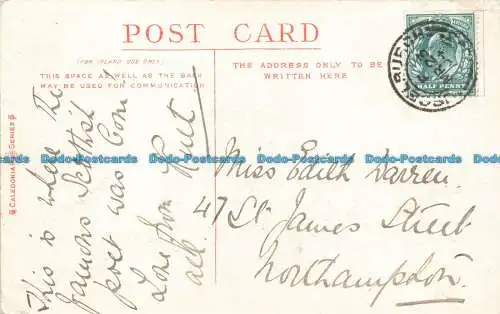 POST CARD
(FOR INLAND USE ONLY)
THIS SPACE AS WELL AS THE BACK
MAY BE USED FOR COMMUNICATION
THE ADDRESS ONLY TO BE
WRITTEN HERE
HALF PENNY
CALEDONIA SERIES
This is where the
famous Scottish
poet was born
Love from
all
Miss Edith Warren.
47 St. James Street
Northampton
Dodo-Postcards Dodo-Postcards Dodo-Postcards Dodo-Postcards Dodo-Postcards